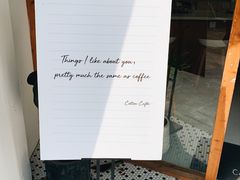 Things I like about you,
pretty much the same as coffee
Cotton Cafe